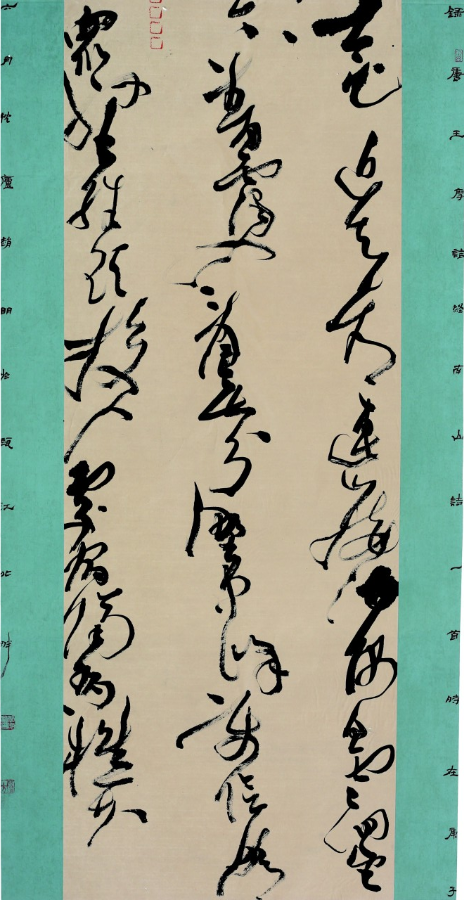 太乙近天都連山接海隅白雲迴望
合青靄入看無分野中峰變陰晴
衆壑殊欲投人處宿隔水問樵夫
錄唐王摩詰終南山詩一首時在庚子
六月廬趙明於江北